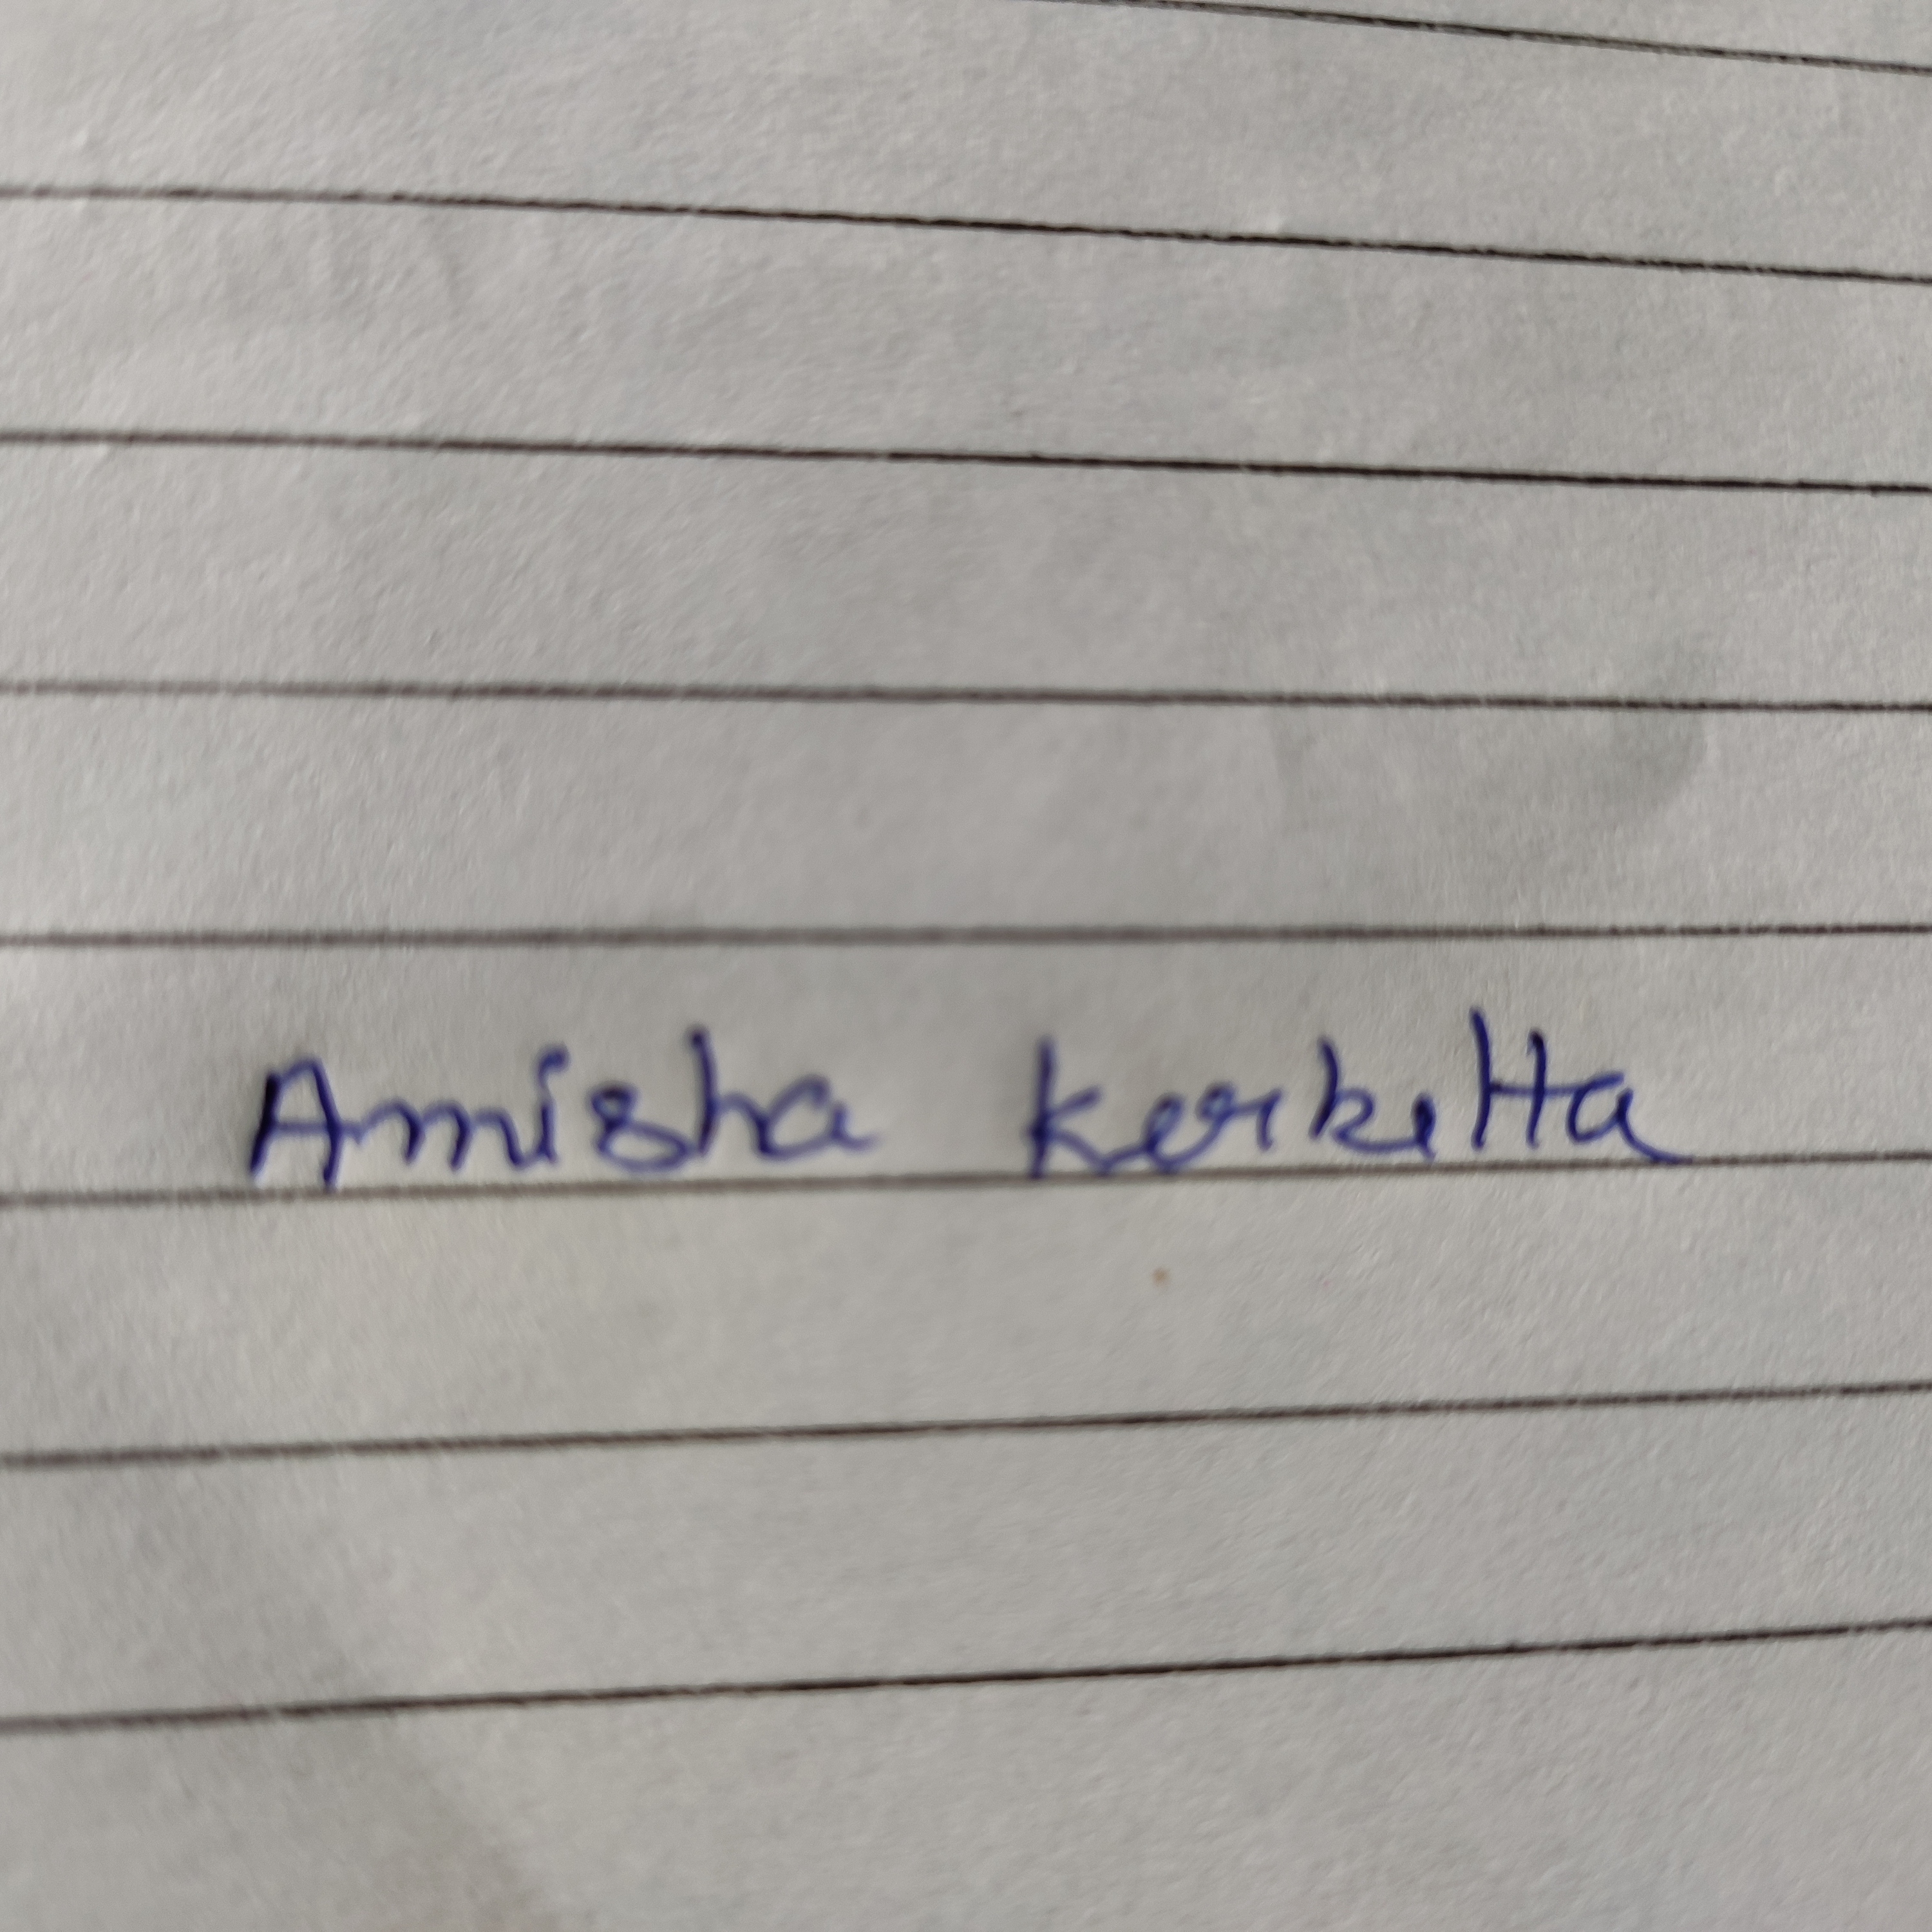 Amisha kerketta